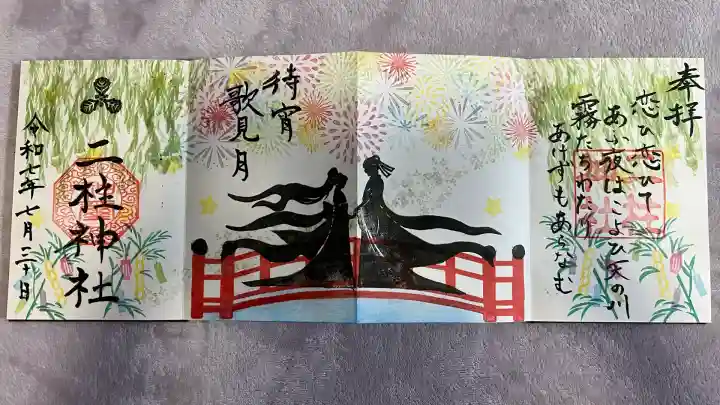 奉拝
恋ひ恋ひて
あふ夜はこよひ天の川
霧たちわたり
あけずもあらなむ
待宵
歌見月
二柱神社
令和七年七月二十日